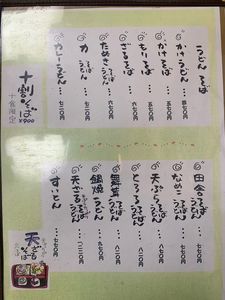 うどん そば
かけうどん … 四七〇円
かけそば … 五七〇円
もりそば … 五七〇円
ざるそば … 六七〇円
たぬき そば うどん … 六七〇円
力 そば うどん … 七二〇円
カレーうどん … 七二〇円
十割そば
¥900
十食限定
田舎 そば うどん … 七七〇円
なめこ そば うどん … 七七〇円
天ぷら そば うどん … 八二〇円
とろろ そば うどん … 八二〇円
舞茸 そば うどん … 八二〇円
鍋焼うどん
天ざる そば うどん … 一二二〇円
すいとん … 七七〇円
天ざるそば